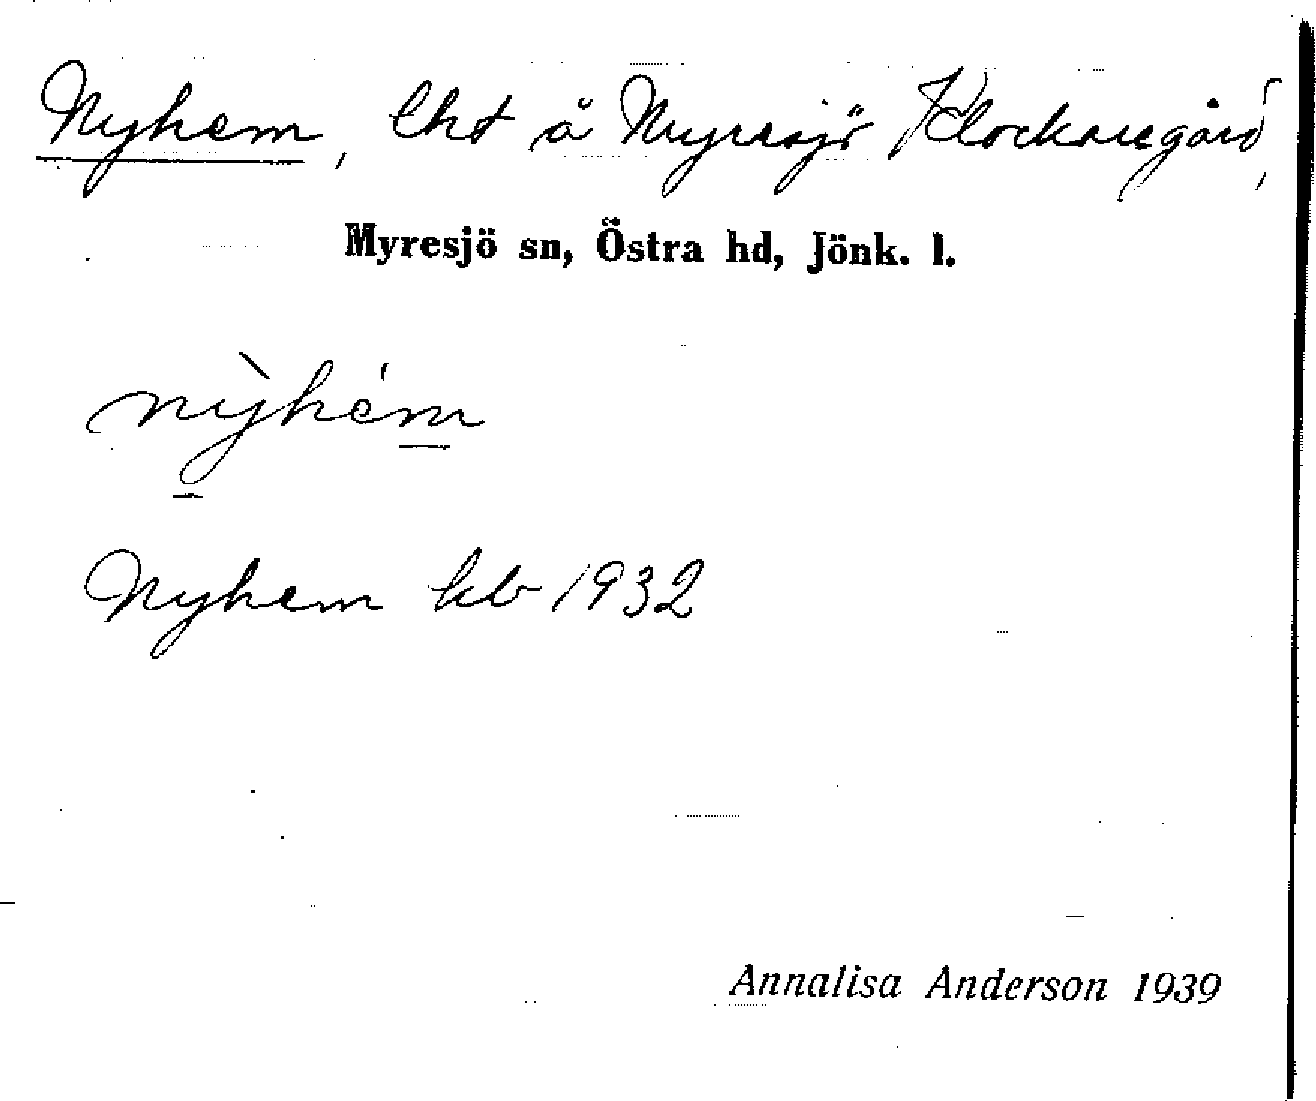 Nyhem, lht å Myresjö Klockaregård,
Myresjö sn, Östra hd, Jönk. l.
nỳhém
Nyhem kb 1932
Annalisa Anderson 1939